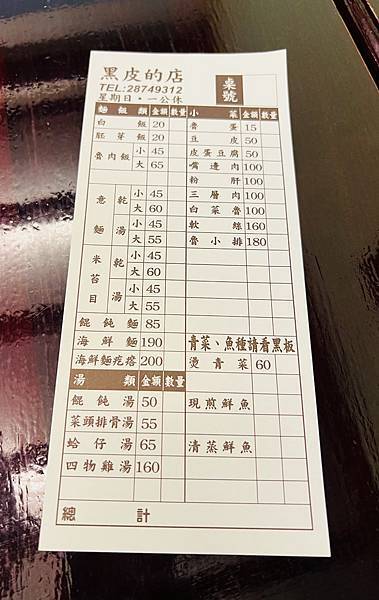 黑皮的店
TEL:28749312
星期日・一公休
桌號
麵飯類 金額 數量 小菜 金額 數量
白飯 20 魯蛋 15
胚芽飯 20 豆皮 50
魯肉飯 小 45 皮蛋豆腐 50
大 65 嘴邊肉 100
粉肝 100
意麵 乾 小 45 三層肉 100
大 60 白菜魯 100
湯 小 45 軟絲 160
大 55 魯小排 180
米苔目 乾 小 45
大 60
湯 小 45
大 55
餛飩麵 85
海鮮麵 190 青菜、魚種請看黑板
海鮮麵疙瘩 200 燙青菜 60
湯類 金額 數量
餛飩湯 50 現煎鮮魚
菜頭排骨湯 55
蛤仔湯 65 清蒸鮮魚
四物雞湯 160
總計